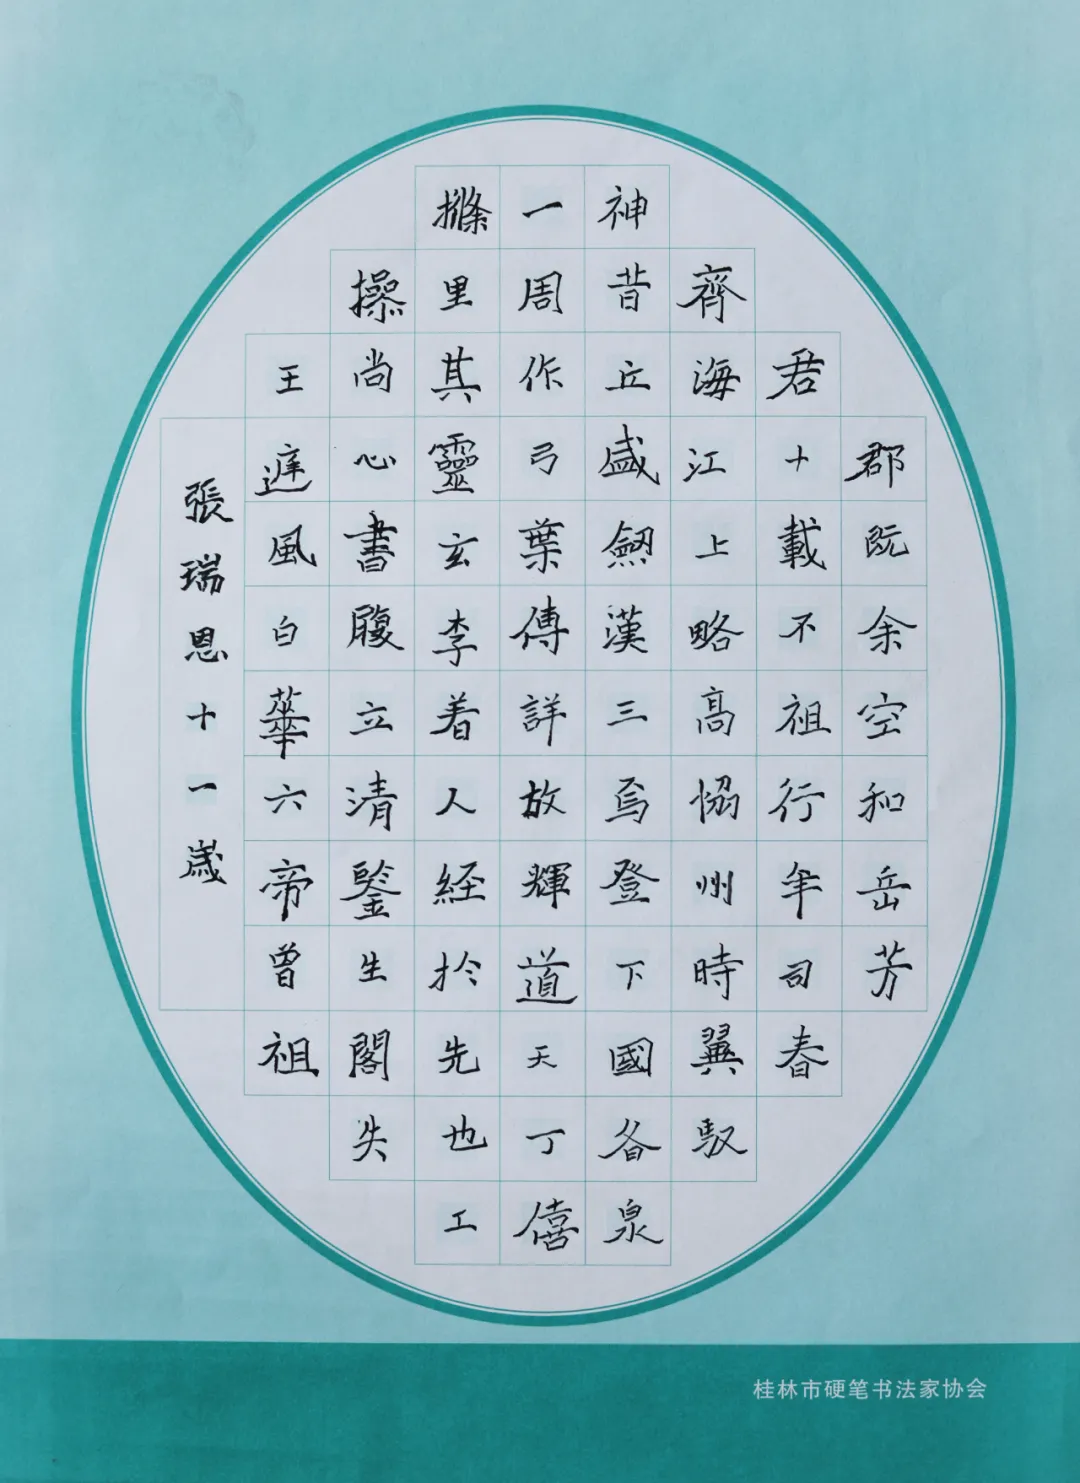 郡既余空和岳芳
君十載不祖行年司春
齊海江上略高恊州時翼馭
神昔丘盛劒漢三焉登下國各泉
一周作弓葉傳詳放輝道天丁僖
滌里其靈玄李着人経於先也工
操尚心書腹立清鑒生閣失
王遅風白華六帝曾祖
張瑞恩十一歲
桂林市硬笔书法家协会